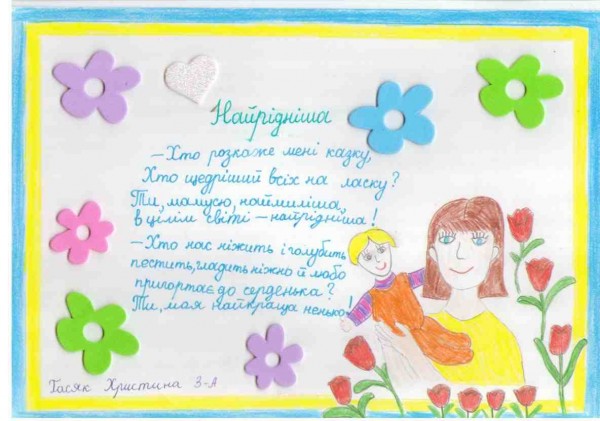 Найрідніша
— Хто розкаже мені казку,
Хто щедріший всіх на ласку?
Ти, мамусю, наймиліша,
в цілім світі – найрідніша!
— Хто нас ніжить і голубить
пестить, гладить ніжно й любо
пригортає до серденька?
Ти, моя найкраща ненько!
Гасяк Христина 3-А